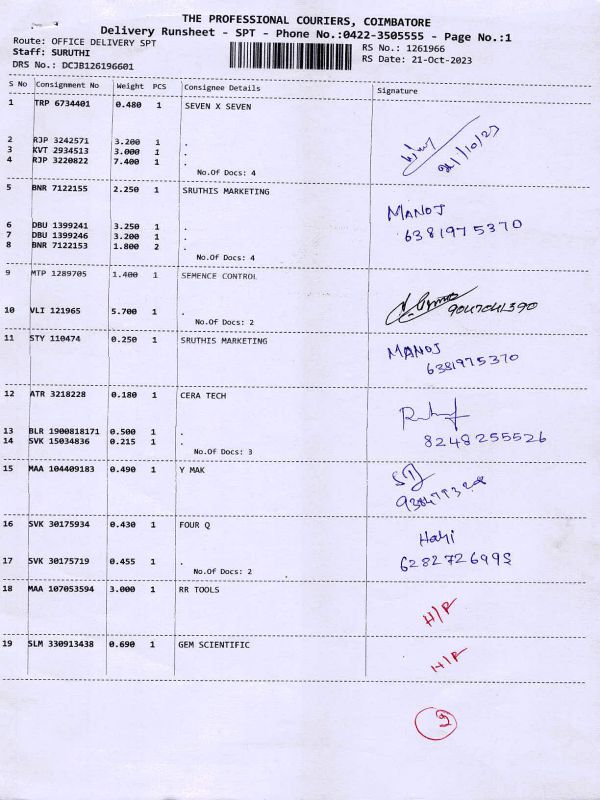 THE PROFESSIONAL COURIERS, COIMBATORE
Delivery Runsheet - SPT - Phone No.:0422-3505555 - Page No.:1
Route: OFFICE DELIVERY SPT
Staff: SURUTHI
DRS No.: DCJB126196601
RS No.: 1261966
RS Date: 21-Oct-2023
S No Consignment No Weight PCS Consignee Details Signature
1 TRP 6734401 0.480 1 SEVEN X SEVEN
2 RJP 3242571 3.200 1 .
3 KVT 2934513 3.000 1 .
4 RJP 3220822 7.400 1 .
No.Of Docs: 4
21/10/23
5 BNR 7122155 2.250 1 SRUTHIS MARKETING
MANOJ
6381975370
6 DBU 1399241 3.250 1 .
7 DBU 1399246 3.200 1 .
8 BNR 7122153 1.800 2 .
No.Of Docs: 4
9 MTP 1289705 1.400 1 SEMENCE CONTROL
10 VLI 121965 5.700 1 .
No.Of Docs: 2
9047041390
11 STY 110474 0.250 1 SRUTHIS MARKETING
MANOJ
6381975370
12 ATR 3218228 0.180 1 CERA TECH
13 BLR 1900818171 0.500 1 .
14 SVK 15034836 0.215 1 .
No.Of Docs: 3
8248255526
15 MAA 104409183 0.490 1 Y MAK
16 SVK 30175934 0.430 1 FOUR Q
Hari
17 SVK 30175719 0.455 1 .
No.Of Docs: 2
6282726998
18 MAA 107053594 3.000 1 RR TOOLS
H/R
19 SLM 330913438 0.690 1 GEM SCIENTIFIC
H/R
2